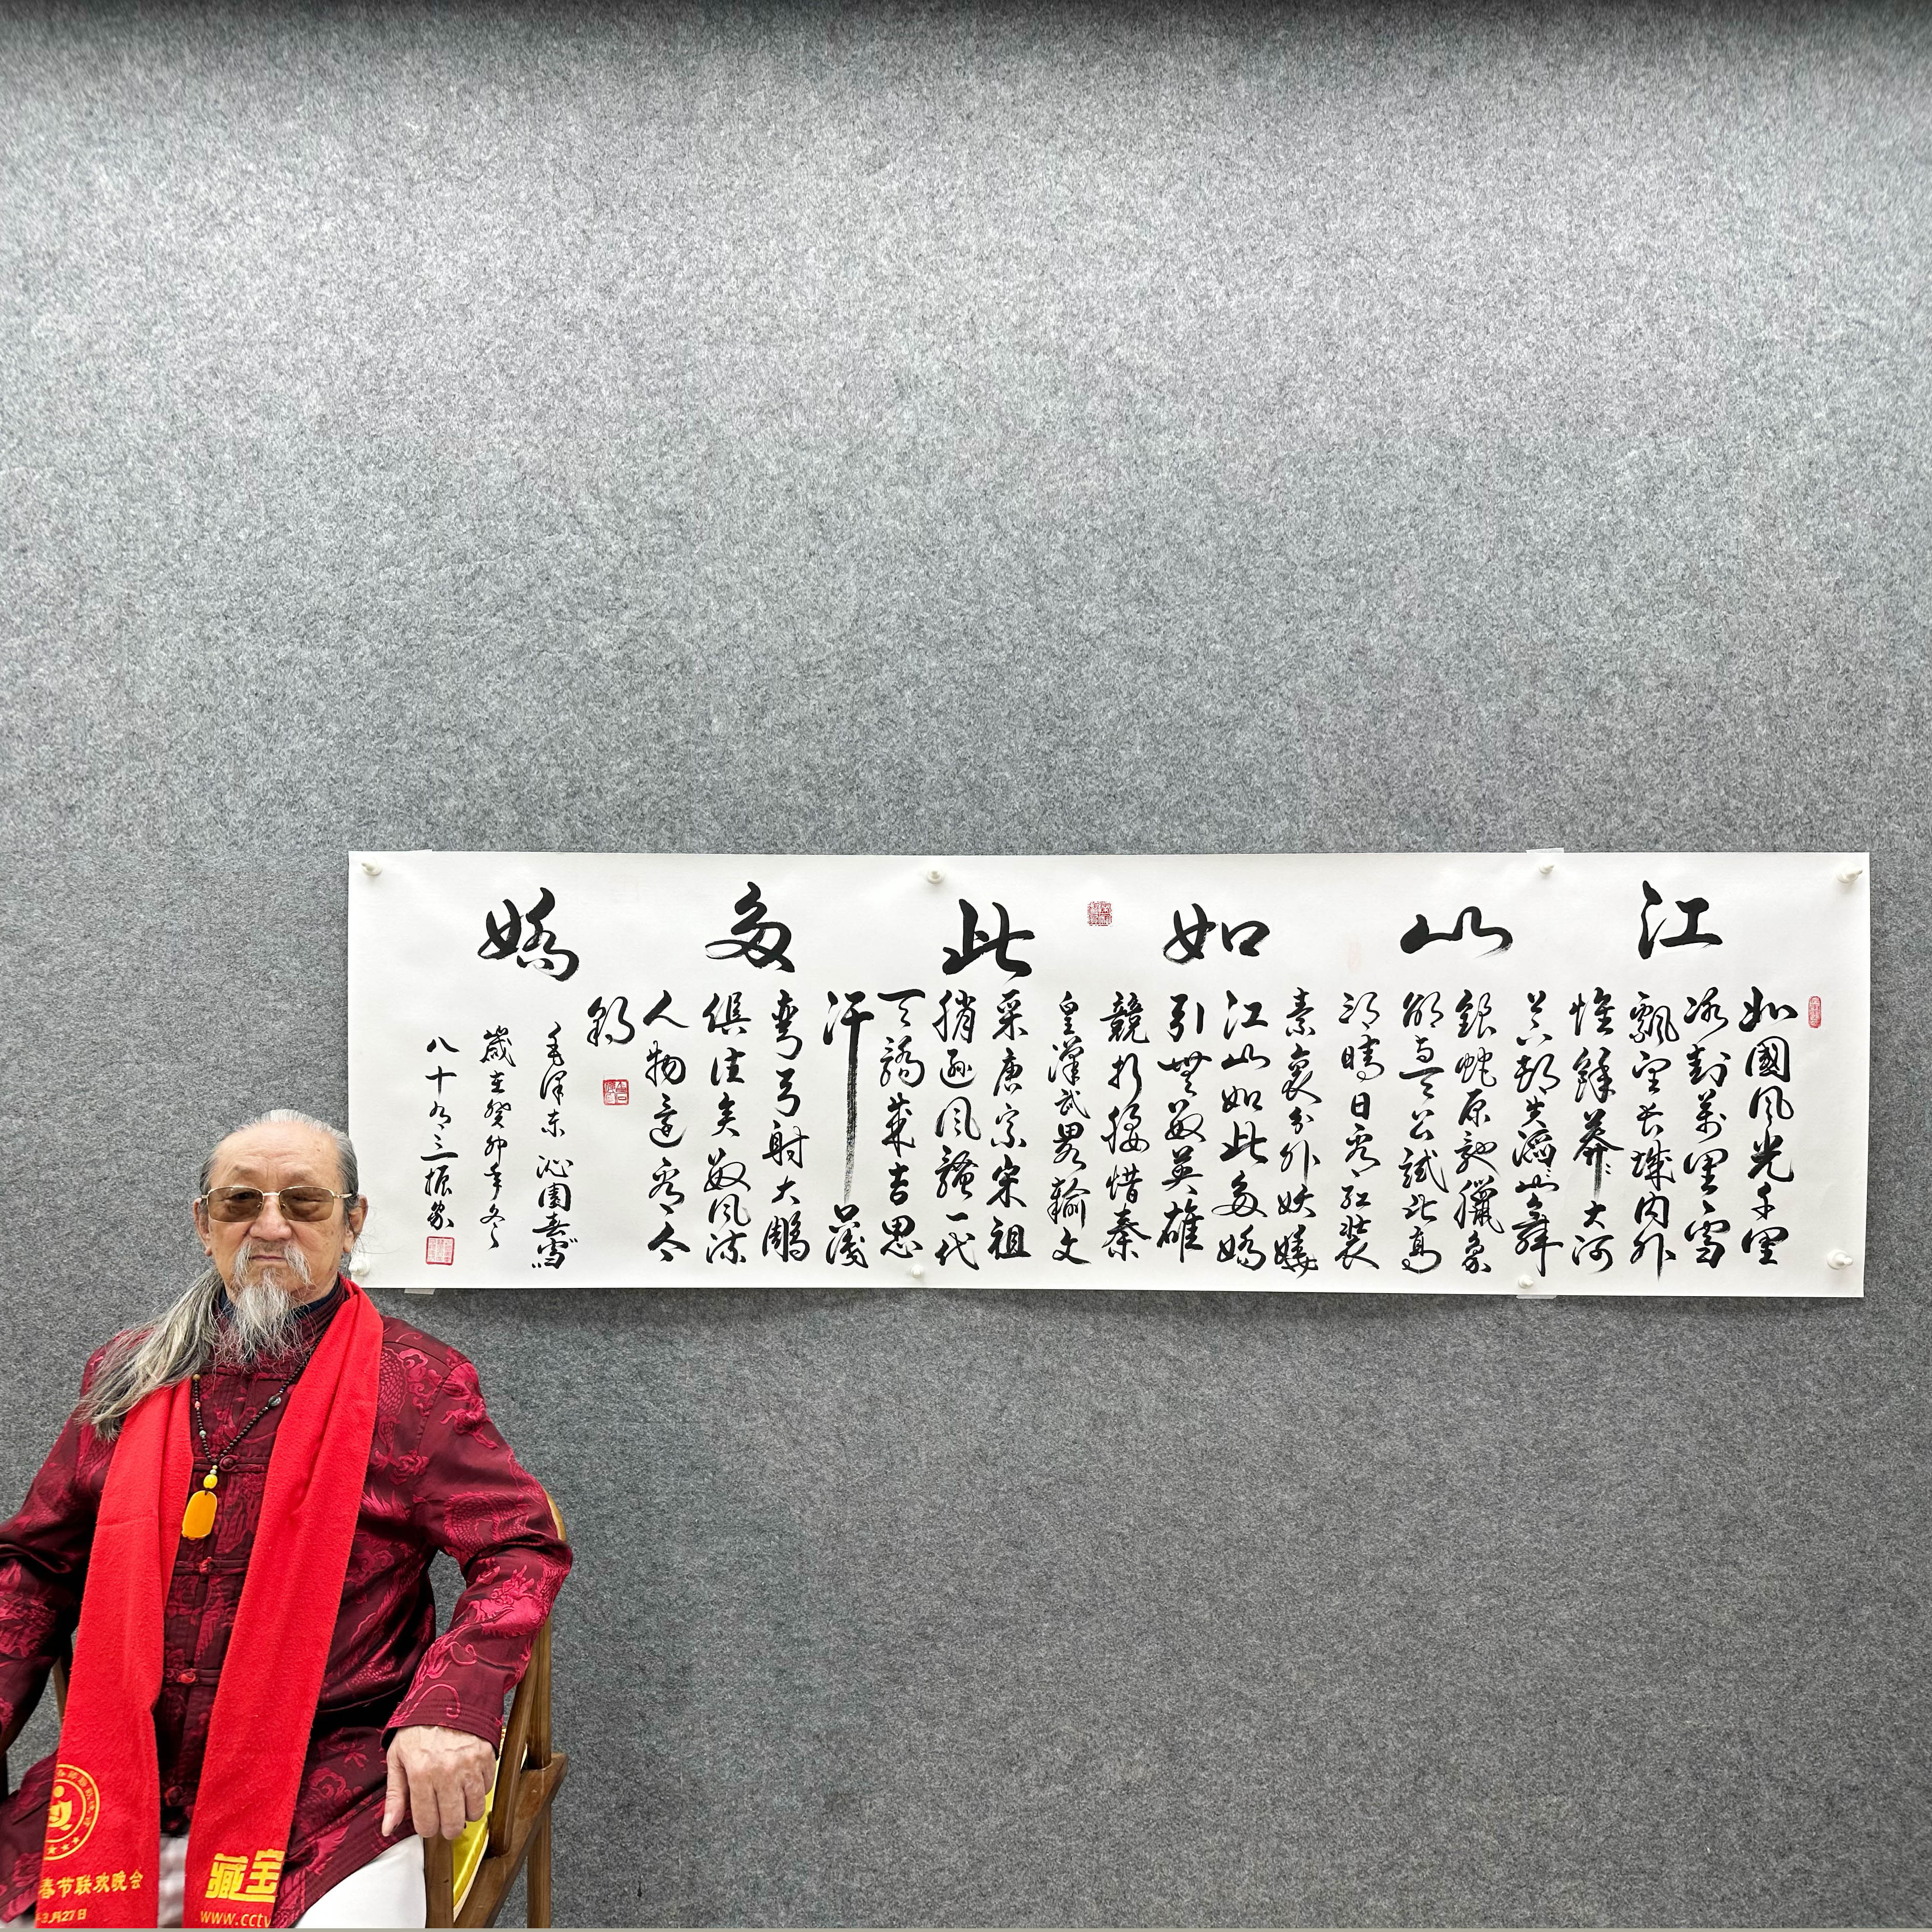 江山如此多嬌
北國風光千里
冰封萬里雪
飄望長城内外
惟餘莽莽大河
上下頓失滔滔山舞
銀蛇原馳蠟象
欲與天公試比高
須晴日看紅裝
素裹分外妖嬈
江山如此多嬌
引無數英雄
競折腰惜秦
皇漢武畧輸文
采唐宗宋祖
稍遜風騷一代
天驕成吉思
汗只識
彎弓射大鵰
俱往矣數風流
人物還看今
朝
毛澤東沁園春雪
歲在癸卯年冬
八十有三振
春节联欢晚会
3月27日
藏宝
www.cctv